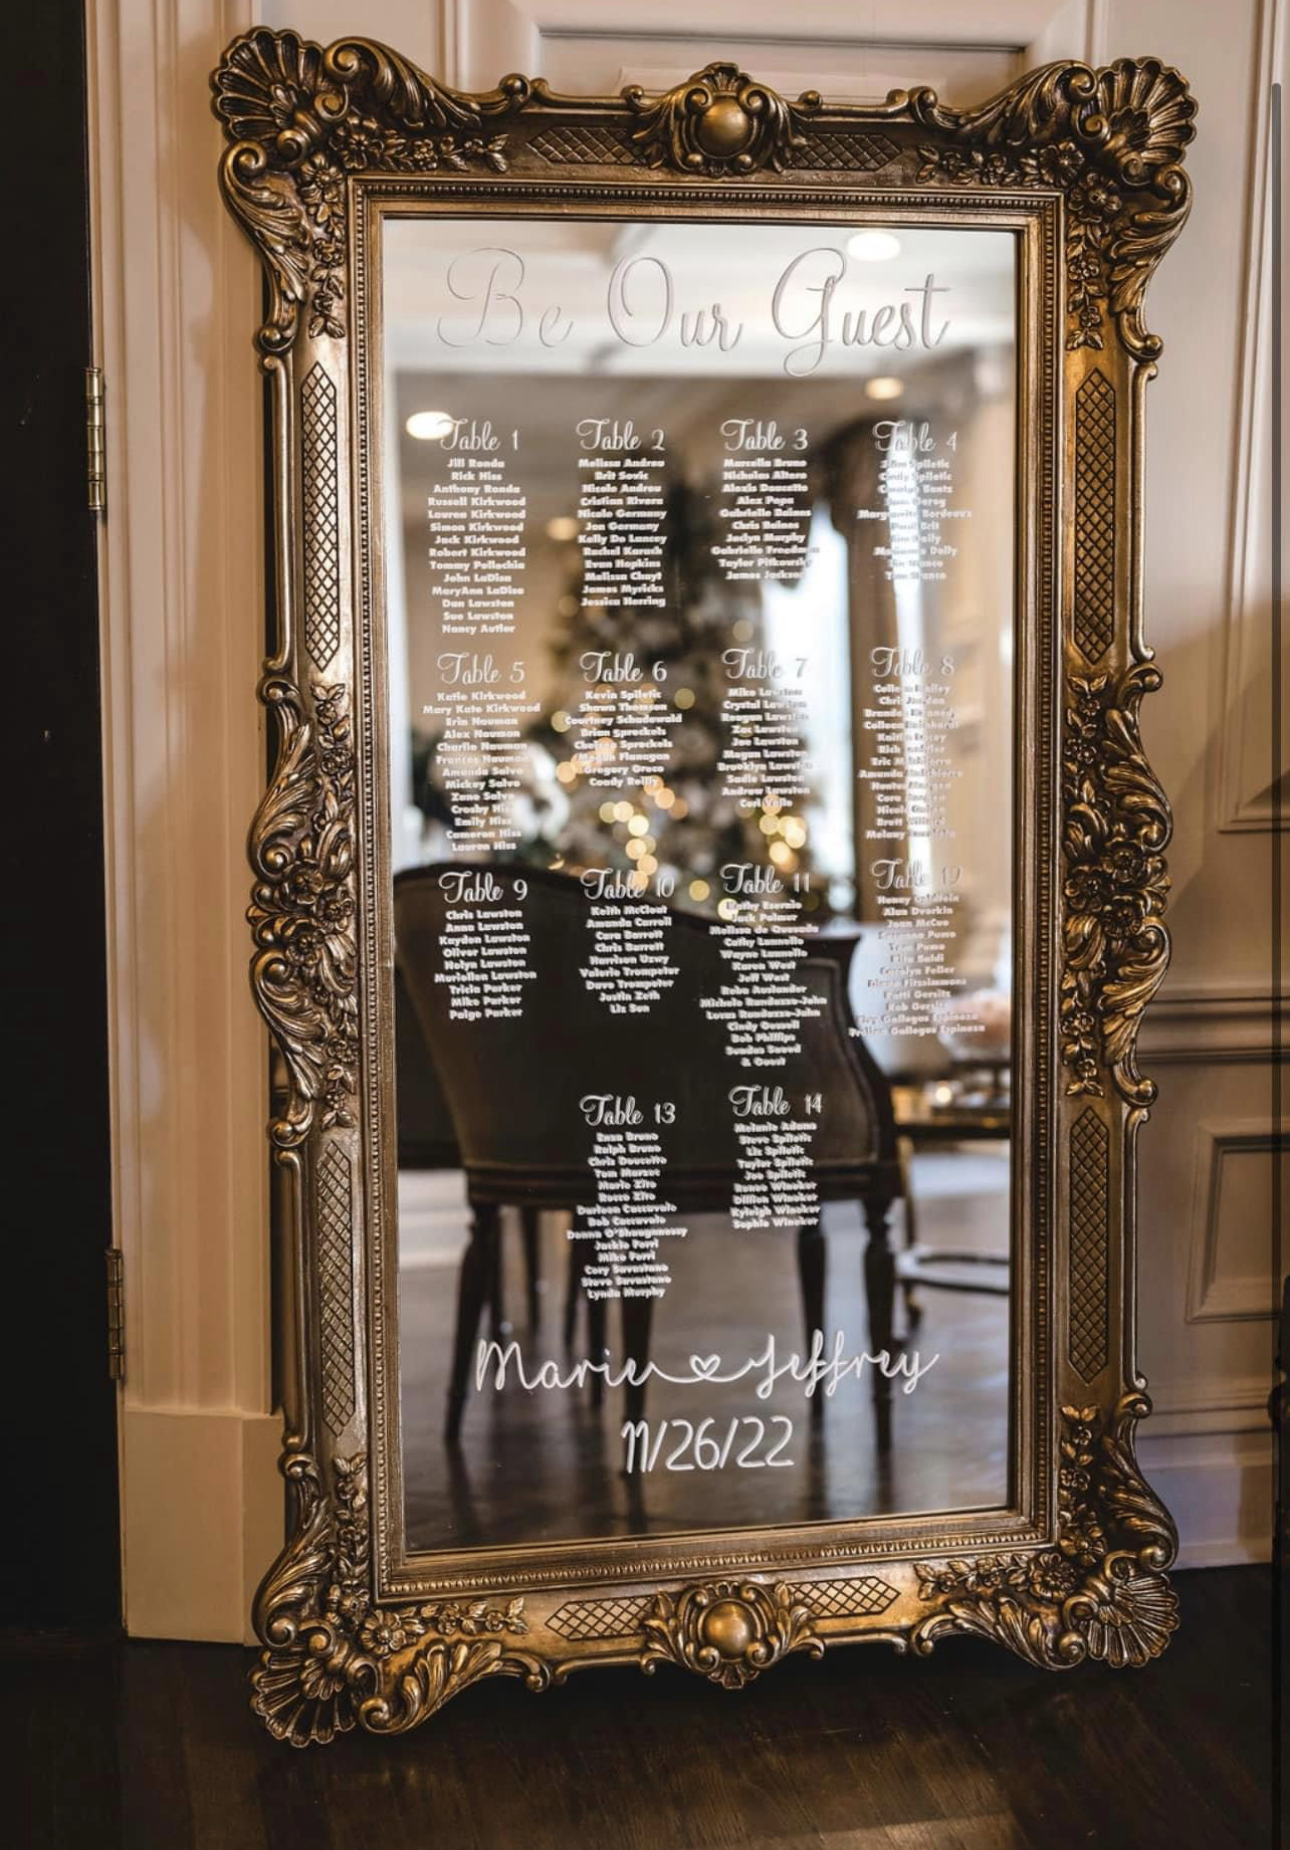 Be Our Guest
Table 1
Jill Ronda
Rick Hiss
Anthony Ronda
Russell Kirkwood
Lauren Kirkwood
Simon Kirkwood
Jack Kirkwood
Robert Kirkwood
Tommy Pellechia
John LaDisa
MaryAnn LaDisa
Dan Lawston
Sue Lawston
Nancy Autler
Table 2
Melissa Andreu
Brit Sovic
Nicole Andreu
Cristian Rivera
Nicole Germany
Jon Germany
Kelly De Lancey
Rachel Karsch
Evan Hopkins
Melissa Chayt
James Myricks
Jessica Herring
Table 3
Marcella Bruno
Nicholas Altera
Alexis Doucette
Alex Papa
Gabrielle Baines
Chris Baines
Jaclyn Murphy
Gabrielle Freedman
Taylor Pitkowsky
James Jackson
Table 4
Spiletic
Cindy Spiletic
Bentz
Marguerite Bordeaux
Paul Brit
Dolly
Dolly
Table 5
Katie Kirkwood
Mary Kate Kirkwood
Erin Nauman
Alex Nauman
Charlie Nauman
Frances Nauman
Amanda Salvo
Mickey Salvo
Zane Salvo
Crosby Hiss
Emily Hiss
Cameron Hiss
Lauren Hiss
Table 6
Kevin Spiletic
Shawn Thomson
Courtney Schadewald
Brian Sprockels
Chelsea Sprockels
Megan Flanagan
Gregory Greco
Coady Reilly
Table 7
Mike Lawston
Crystal Lawston
Reagan Lawston
Zac Lawston
Joe Lawston
Megan Lawston
Brooklyn Lawston
Sadie Lawston
Andrew Lawston
Cori Valle
Table 8
Chris
Colleen
Rich
Eric
Amanda
Cora
Nicole
Brett
Melany
Table 9
Chris Lawston
Anna Lawston
Kayden Lawston
Oliver Lawston
Nelyn Lawston
Mariellen Lawston
Tricia Parker
Mike Parker
Paige Parker
Table 10
Keith McClout
Amanda Carroll
Cara Barrett
Chris Barrett
Harrison Uzwy
Valerie Trompeter
Dave Trompeter
Justin Zeth
Liz Son
Table 11
Kathy Esernio
Jack Palmer
Melissa de Quesada
Cathy Lannello
Wayne Lannello
Karen West
Jeff West
Reba Auslander
Michele Randazzo-John
Lucas Randazzo-John
Cindy Gossell
Bob Phillips
Sundas Saeed
& Guest
Table 12
Honey Goldfein
Alan Dvorkin
Joan McCue
Puma
Tom Puma
Rita Baldi
Carolyn Feller
Fitzsimmons
Patti Gersitz
Rob Gersitz
Gallegos Espinoza
Gallegos Espinoza
Table 13
Enza Bruno
Ralph Bruno
Chris Doucette
Tom Marzec
Marie Zito
Rocco Zito
Darleen Caccavale
Bob Caccavale
Donna O'Shaugnnessy
Jackie Ferri
Mike Ferri
Cory Savastano
Steve Savastano
Lynda Murphy
Table 14
Melanie Adams
Steve Spiletic
Liz Spiletic
Taylor Spiletic
Joe Spiletic
Renee Wineker
Dillion Wineker
Kyleigh Wineker
Sophie Wineker
Marie Jeffrey
11/26/22